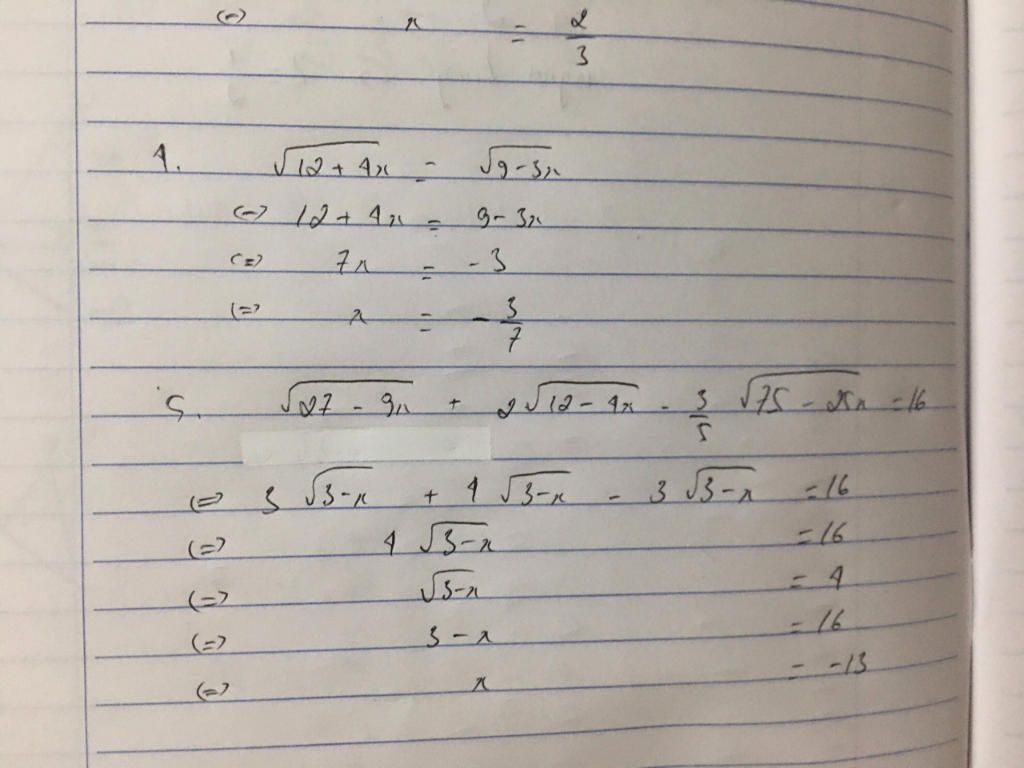 (=) x = 2/3
4. √(12 + 4x) = √(9 - 3x)
(=) 12 + 4x = 9 - 3x
(=) 7x = -3
(=) x = - 3/7
5. √(27 - 9x) + 2√(12 - 4x) - 3/5 √(75 - 25x) = 16
(=) 3 √(3-x) + 4 √(3-x) - 3 √(3-x) = 16
(=) 4 √(3-x) = 16
(=) √(3-x) = 4
(=) 3 - x = 16
(=) x = -13